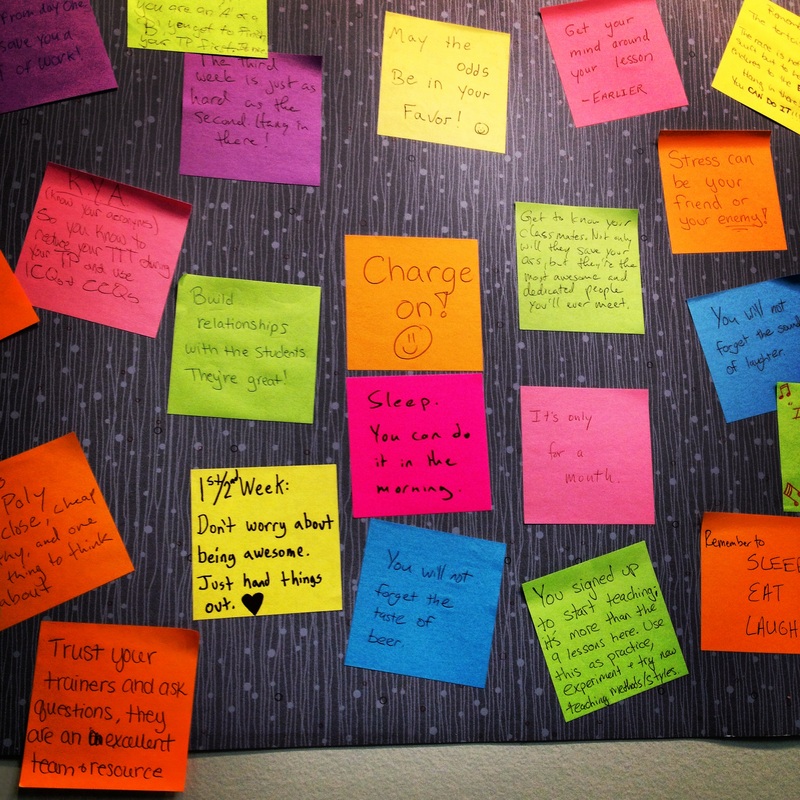 from day One
save you a
of work!
you are an A or a
B, you get to finish
your TP first
The third
week is just as
hard as the
second. Hang in
there!
May the
odds
Be in your
Favor!
Get your
mind around
your lesson
-EARLIER
You CAN DO IT!!!
K.Y.A.
(know your acronyms)
So you know to
reduce your TTT during
your TP and use
ICQs + CCQs
Build
relationships
with the students.
They're great!
Charge
on!
Get to know your
classmates. Not only
will they save your
ass, but they're the
most awesome and
dedicated people
you'll ever meet.
Stress can
be your
friend or
your enemy!
You will not
forget the sound
of laughter
Sleep.
You can do
it in the
morning.
It's only
for a
month.
Poly
close, cheap
and one
thing to think
about
1st/2nd Week:
Don't worry about
being awesome.
Just hand things
out.
You will not
forget the
taste of
beer.
You signed up
to start teaching;
it's more than the
9 lessons here. Use
this as practice,
experiment + try new
teaching methods/styles.
Remember to
SLEEP
EAT
LAUGH
Trust your
trainers and ask
questions, they
are an excellent
team + resource